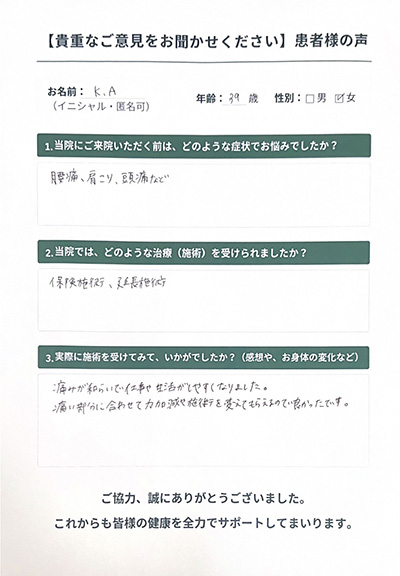 【貴重なご意見をお聞かせください】患者様の声
お名前： K.A 年齢： 39 歳 性別：□男 ☑女
（イニシャル・匿名可）
1.当院にご来院いただく前は、どのような症状でお悩みでしたか？
腰痛、肩こり、頭痛など
2.当院では、どのような治療（施術）を受けられましたか？
保険施術、延長施術
3.実際に施術を受けてみて、いかがでしたか？（感想や、お身体の変化など）
痛みが和らいで仕事や生活がしやすくなりました。
痛い部分に合わせて力加減や施術を変えてもらえるので良かったです。
ご協力、誠にありがとうございました。
これからも皆様の健康を全力でサポートしてまいります。